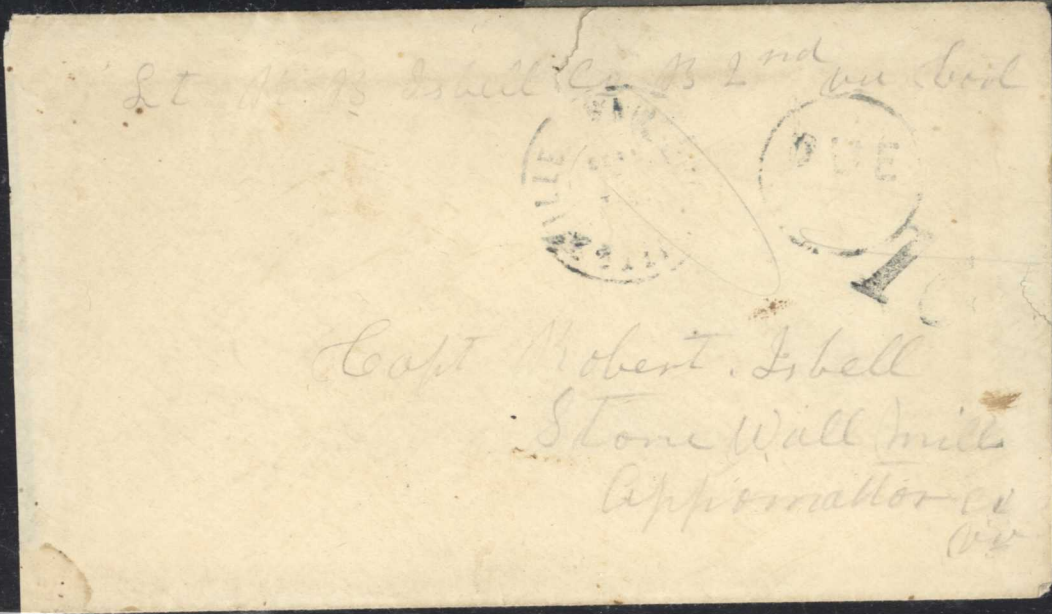 Lt R B Isbell Co B 2nd va Cav
VILLE
DUE
10
Capt Robert Isbell
Stone Wall Mill
Appomattox Co
va